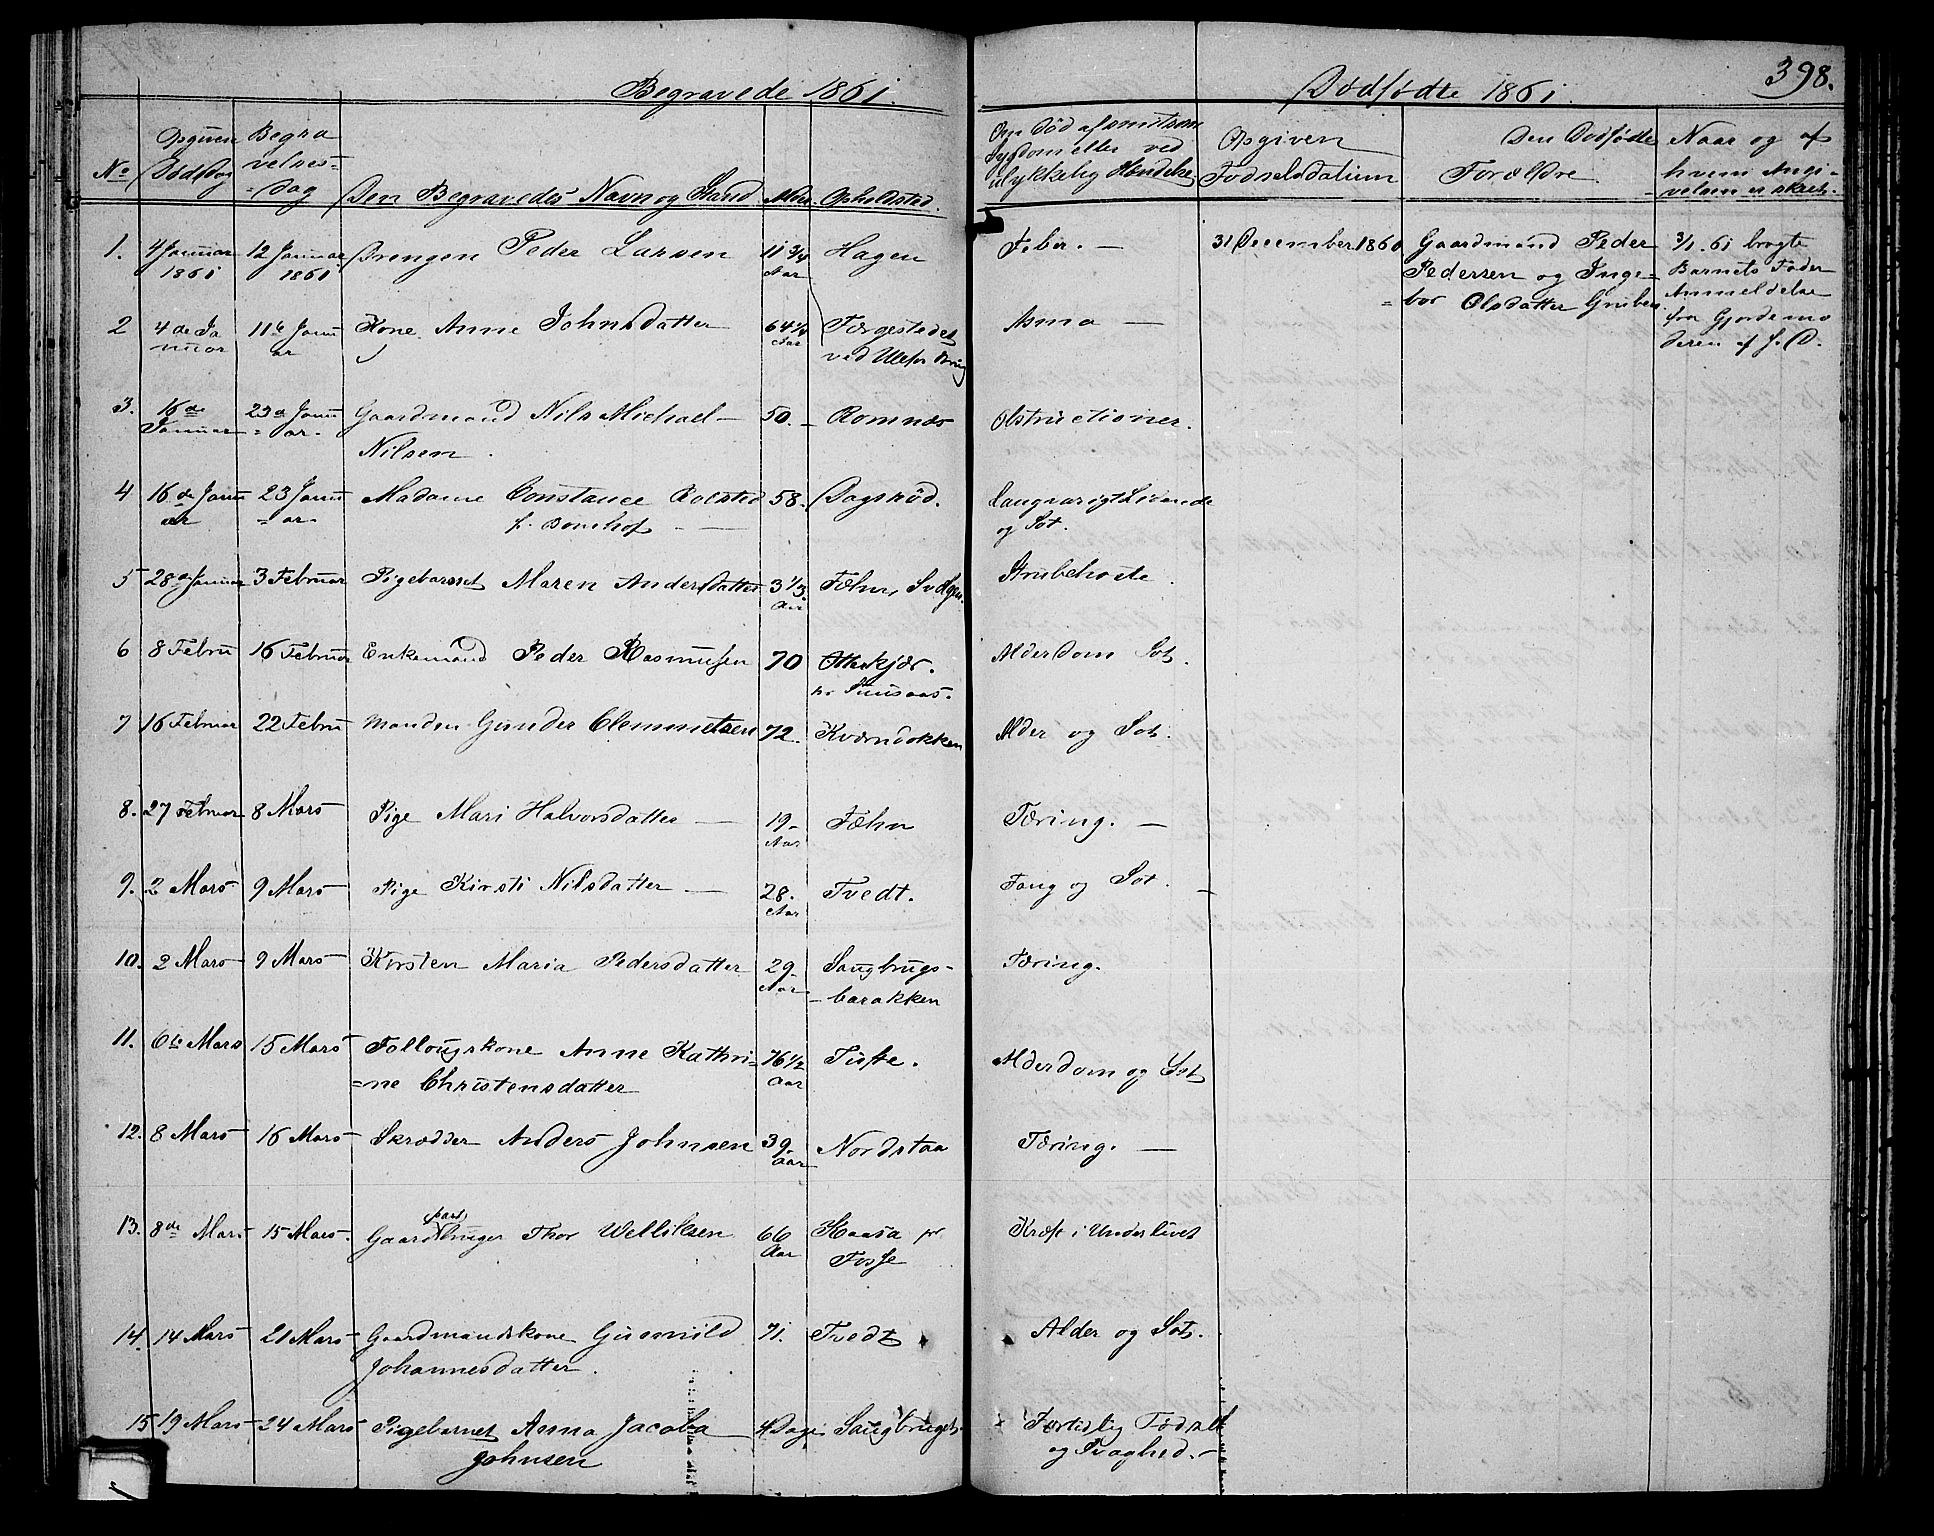 398.
Begravede 1861.
Dødfødte 1861.
No
Opgiven Dødsdag
Begravelses=Dag
Den Begravedes Navn og Stand
Alder
Opholdsted.
Om Død af smitsom Sygdom eller ved ulykkelig Hændelse
Opgiven Fødselsdatum
Den Dødfødte Forældre.
Naar og af hvem Angivelsen er skeet.
1. 4 Januar 1861 12 Januar 1861 Drengen Peder Larsen 11 3/4 Aar Hagen Feber. —
31 December 1860 Gaardmand Peder Pedersen og Ingebor Olsdatter Gruben
3/1. 61 bragte
Barnets Fader
Anmeldelse
fra Gjordemo
deren af J. D.
2 4de Januar 11te Januar Kone Anne Johnsdatter 64 1/2 Aar Færgestedet ved Ulefos Brug Asma —
3. 16de Januar 23de Januar Gaardmand Nils Michael Nilsen. 50. Romnæs Obstructioner.
4 16de Januar 23 Januar Madame Constance Rolsted f. Bomhof — 58. Dagsrød. Langvarigt Levende og Sot.
5 28de Januar 3 Februar Pigebarnet Maren Andersdatter 3 1/3 Aar Fæhn, Strubehoste
6 8 Febru 16 Februar Enkemand Peder Rasmusen 70 kjær. Alderdom Sot.
7 16 Februar 22 Febru Manden Gunder Clemmetsen 72. Kværndokken Alder og Sot.
8. 27 Februar 8 Mars Pige Mari Halvorsdatter — 19 Aar Fæhn Tæring. —
9. 2 Mars 9 Mars Pige Kirsti Nilsdatter — 28. Aar Tvedt. og Sot. —
10. 2 Mars 9 Mars Kirsten Maria Pedersdatter 29 Aar Saugbrugs-barakken Tæring.
11. 6te Mars 15 Mars Follougskone Anne Kathrine Christensdatter 76 1/2 Aar Tufte. Alderdom og Sot
12. 8 Mars 16 Mars Skrædder Anders Johnsen 39. Aar Nordstaa Tæring. —
13. 8de Mars 15 Mars. Gaardpartbruger Thor Wetliksen 66 Aar Haasa pr Fosse Kræft i Underlivet
14. 14 Mars 21 Mars Gaardmandskone Gunnild Johannesdatter. 71. Tvedt Alder og Sot.
15 19 Mars 24 Mars Pigebarnet Anna Jacoba Johnsen 4 Dage Saugbruget Fortidlig Fødsel og Svaghed.